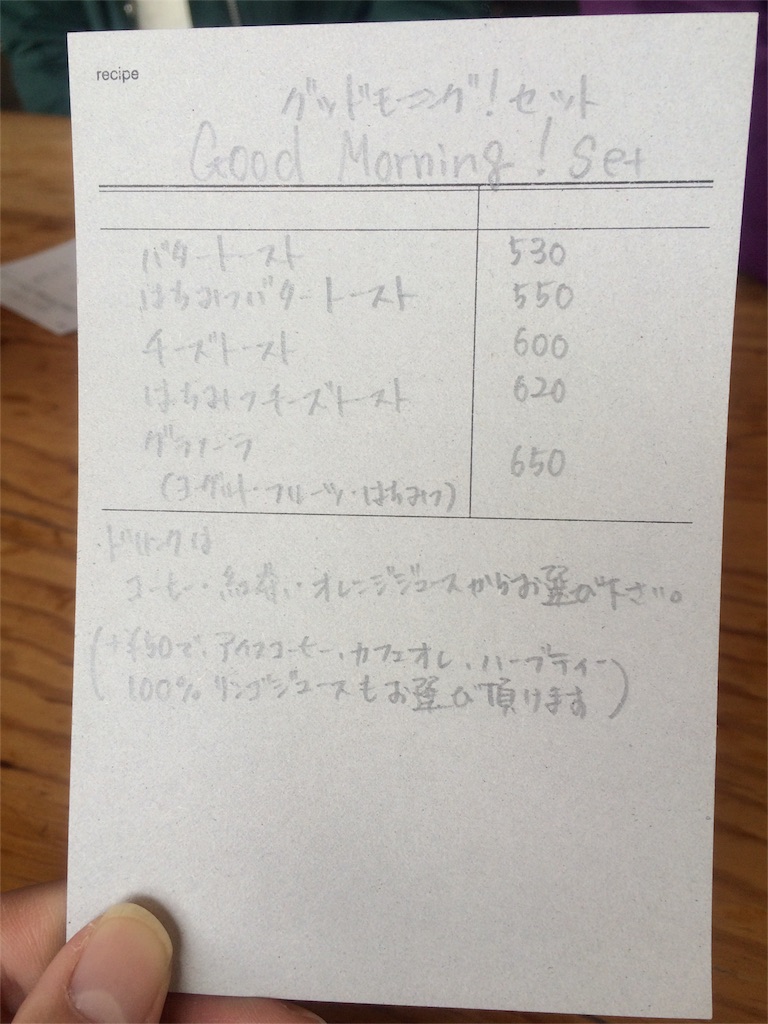 recipe
グッドモーニング!セット
Good Morning! Set
バタートースト 530
はちみつバタートースト 550
チーズトースト 600
はちみつチーズトースト 620
グラノーラ 650
(ヨーグルト・フルーツ・はちみつ)
ドリンクは
コーヒー・紅茶・オレンジジュースからお選び下さい。
(+¥50で、アイスコーヒー、カフェオレ、ハーブティー
100%リンゴジュースもお選び頂けます)